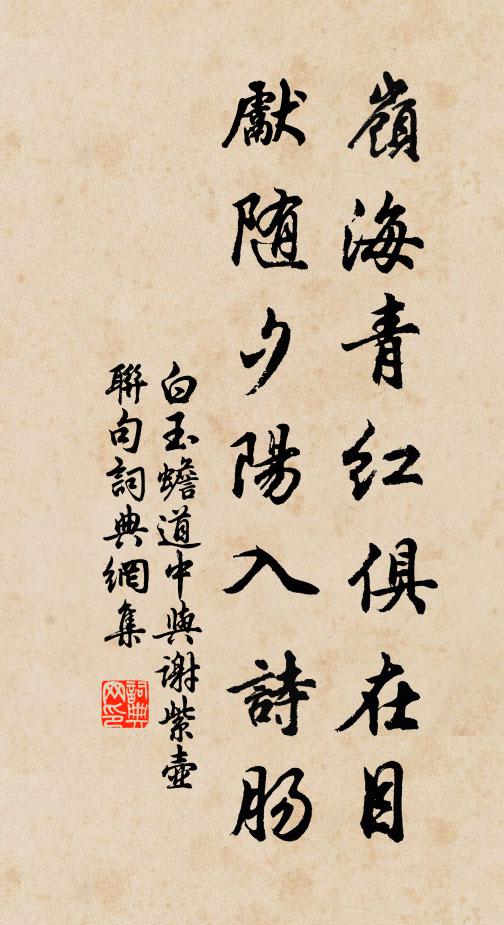 嶺海青紅俱在目
獻随夕陽入詩肠
白玉蟾道中與謝紫壺
聯句詞典網集
詞典网印